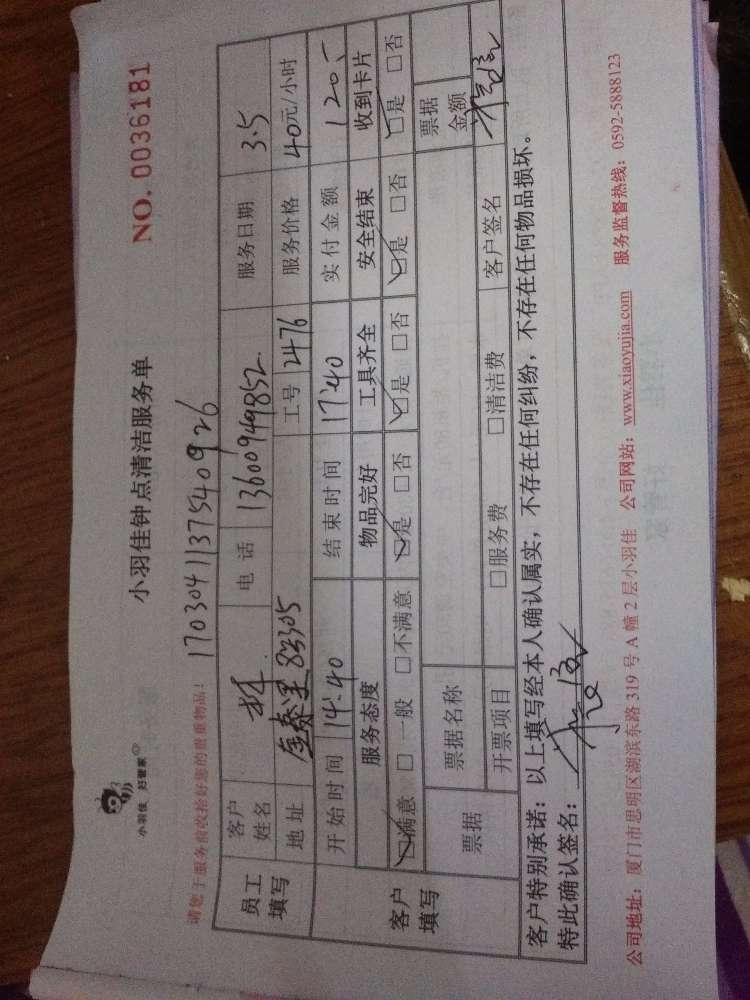 小羽佳 好管家
小羽佳钟点清洁服务单
NO. 0036181
请您于服务前收拾好您的贵重物品！
170304113754 0926
员工填写 客户姓名 林 电话 13600949852 服务日期 3.5
地址 金泰里8#305 工号 2476 服务价格 40元/小时
开始时间 14:40 结束时间 17:40 实付金额 120.-
客户填写 服务态度 物品完好 工具齐全 安全结束 收到卡片
☑满意 □一般 □不满意 ☑是 □否 ☑是 □否 ☑是 □否 ☑是 □否
票据 票据名称 票据金额
开票项目 □服务费 □清洁费 客户签名
客户特别承诺：以上填写经本人确认属实，不存在任何纠纷，不存在任何物品损坏。
特此确认签名：
公司地址：厦门市思明区湖滨东路 319 号 A 幢 2 层小羽佳 公司网站：www.xiaoyujia.com 服务监督热线：0592-5888123